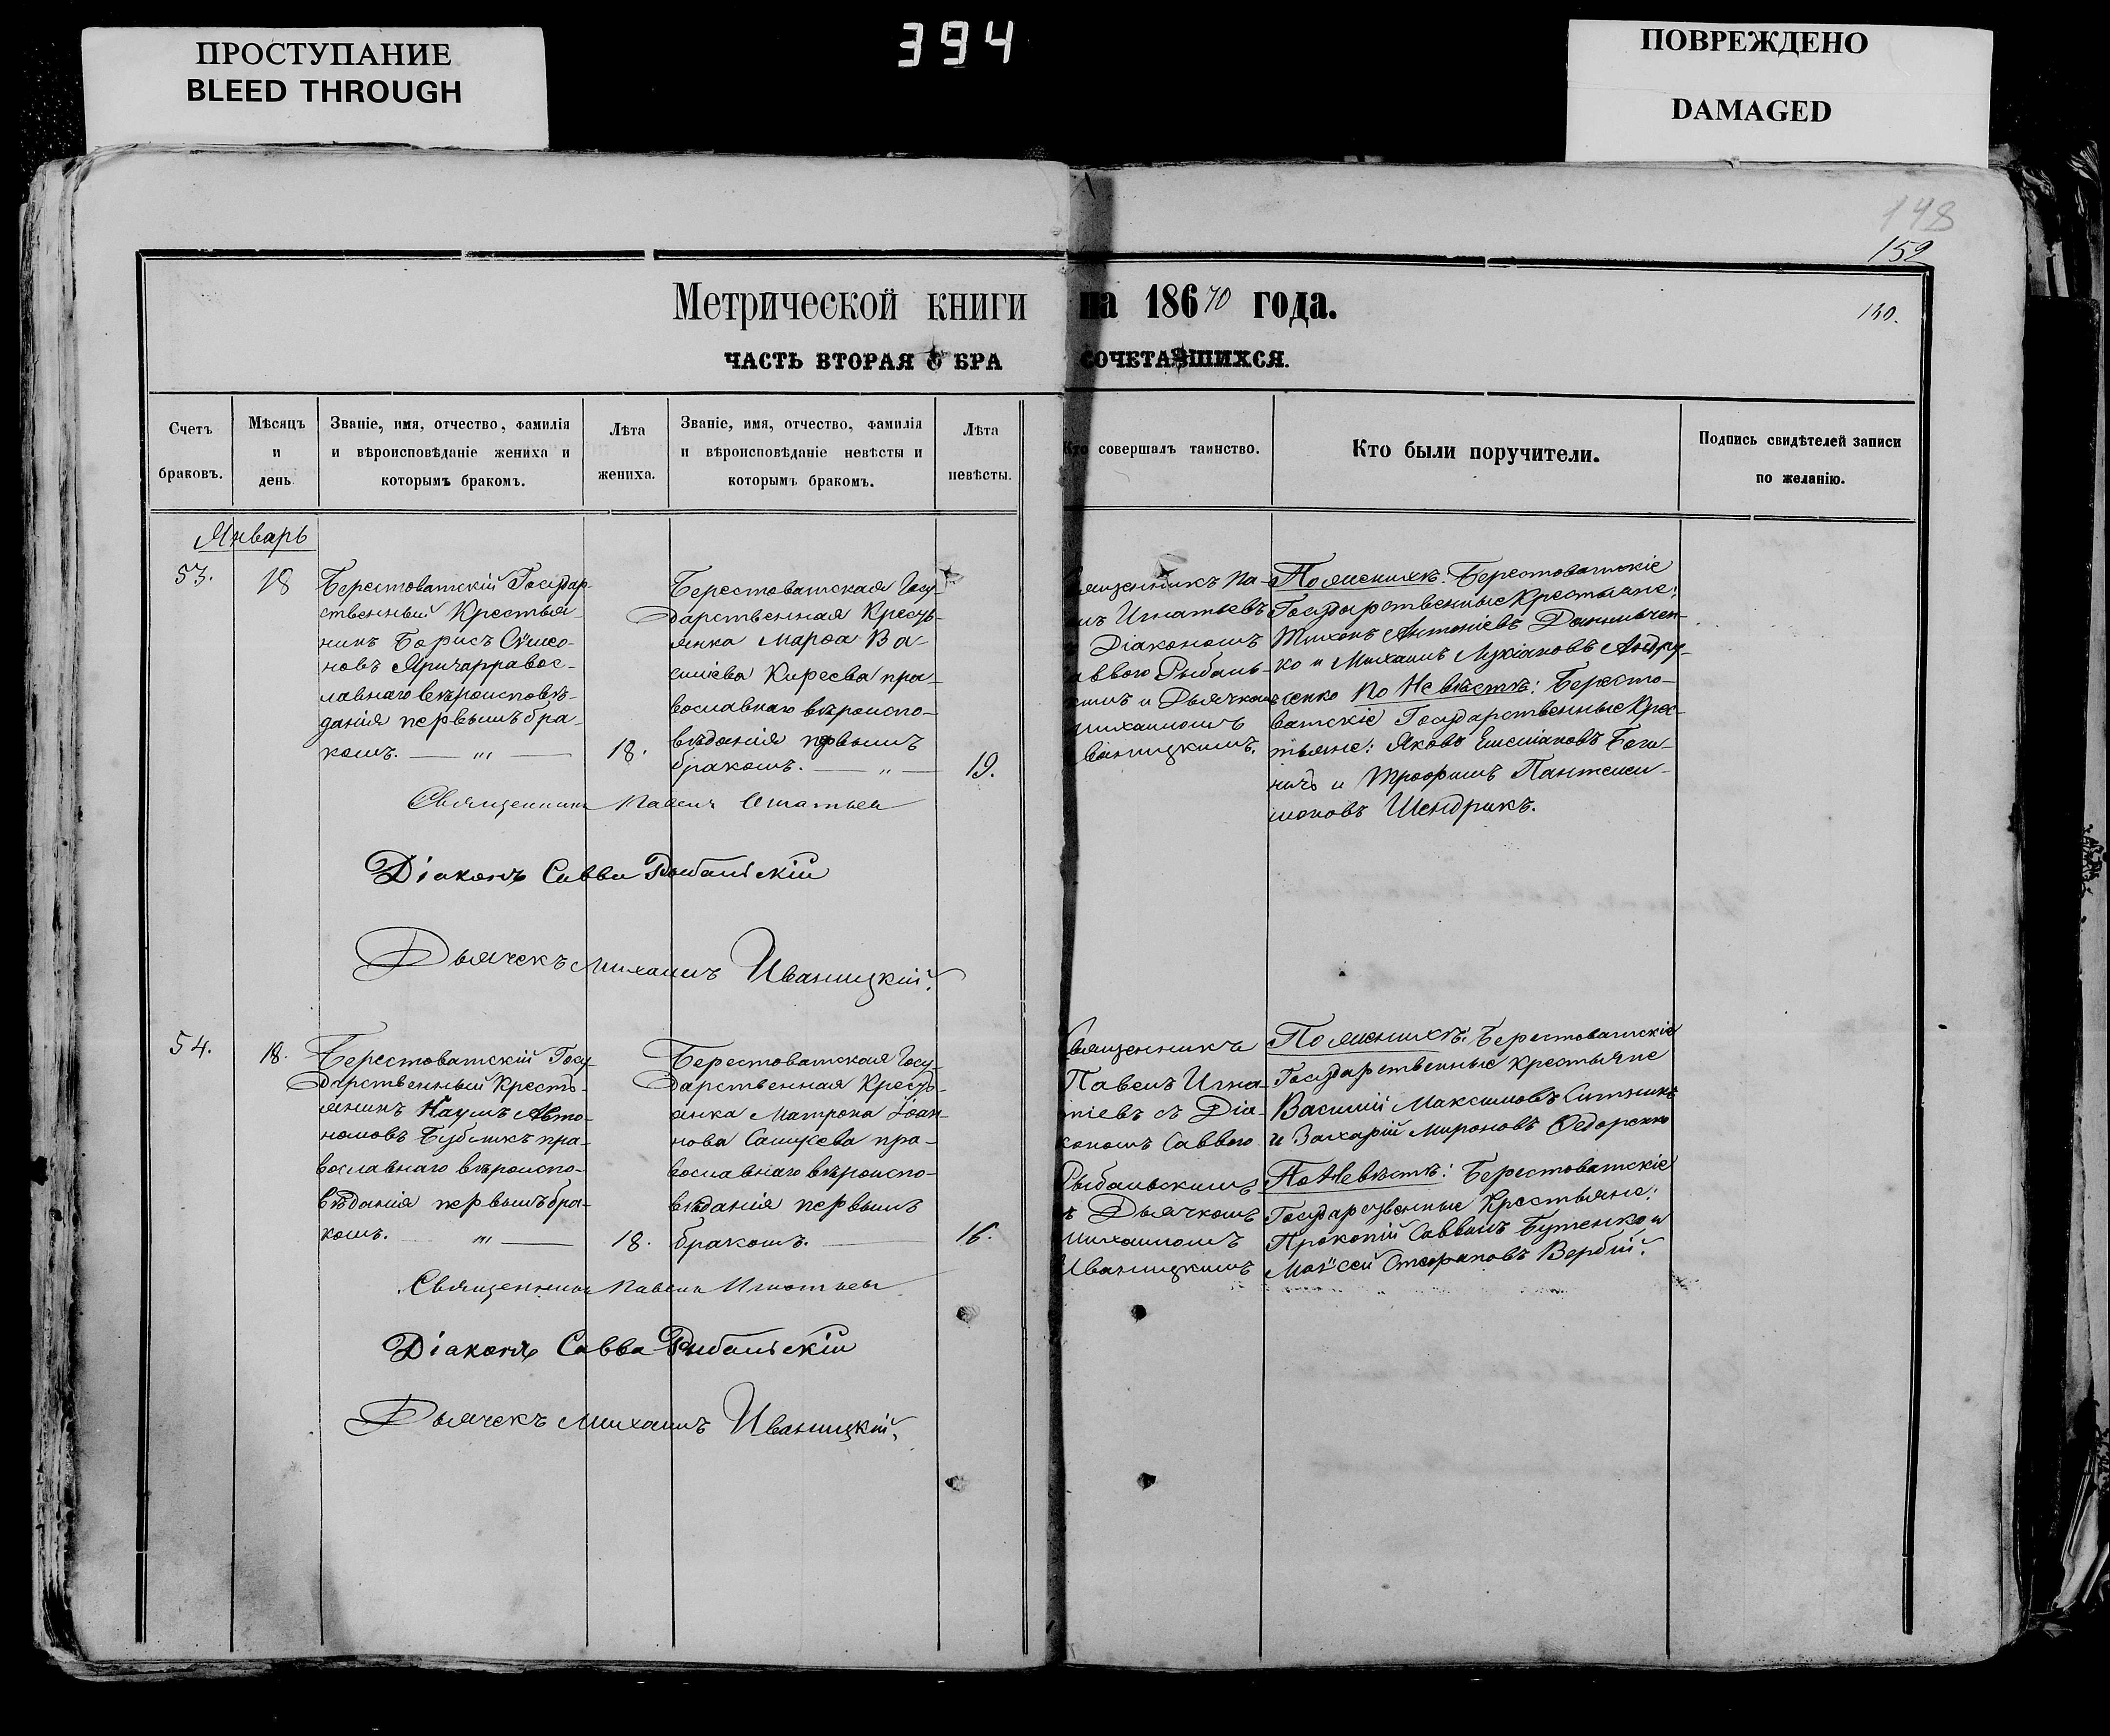 ПРОСТУПАНИЕ
BLEED THROUGH
394
ПОВРЕЖДЕНО
DAMAGED
148
152
Метрической книги на 18670 года.
140.
ЧАСТЬ ВТОРАЯ О БРА СОЧЕТАВШИХСЯ.
Счетъ
браковъ.
Мѣсяцъ
и
день.
Званіе, имя, отчество, фамилія
и вѣроисповѣданіе жениха и
которымъ бракомъ.
Лѣта
жениха.
Званіе, имя, отчество, фамилія
и вѣроисповѣданіе невѣсты и
которымъ бракомъ.
Лѣта
невѣсты.
Кто совершалъ таинство.
Кто были поручители.
Подпись свидѣтелей записи
по желанію.
Январь
53.
18
Берестоватскій Государ-
ственный Крестья-
нинъ Борисъ Симео-
новъ Яричъ правос-
лавнаго вѣроисповѣ-
данія первымъ бра-
комъ. — „ —
18.
Берестоватская Госу-
дарственная Кресть-
янка Марѳа Ва-
силіева Кирѣева пра-
вославнаго вѣроиспо-
вѣданія первымъ
бракомъ. — „ —
19.
вященникъ Па-
лъ Игнатьевъ
ъ Діакономъ
аввою Рыбаль-
кимъ и Дьячкомъ
Михаиломъ
ваницкимъ.
По женихѣ: Берестоватскіе
Государственные Крестьяне:
Тихонъ Антоніевъ Данильчен-
ко и Михаилъ Лукіановъ Андру-
сенко По Невѣстѣ: Бересто-
ватскіе Государственные Крес-
тьяне: Яковъ Емеліановъ Боги-
ничъ и Трофимъ Пантелеи-
моновъ Шендрикъ.
Священникъ Павелъ Игнатьевъ
Діаконъ Савва Рыбальскій
Дьячекъ Михаилъ Иваницкій.
54.
18.
Берестоватскій Госу-
дарственный Кресть-
янинъ Наумъ Авто-
номовъ Бубликъ пра-
вославнаго вѣроиспо-
вѣданія первымъ бра-
комъ. — „ —
18.
Берестоватская Госу-
дарственная Кресть-
янка Матрона Іоан-
нова пра-
вославнаго вѣроиспо-
вѣданія первымъ
бракомъ. —
16.
Священникъ
Павелъ Игна-
тіевъ съ Діа-
кономъ Саввою
Рыбальскимъ
ъ Дьячкомъ
Михаиломъ
Иваницкимъ
По женихѣ: Берестоватскіе
Государственные Крестьяне
Василій Максимовъ Ситникъ
и Захарій Мироновъ Ѳедоренко
По Невѣстѣ: Берестоватскіе
Государственные Крестьяне:
Прокопій Саввинъ Бутенко и
Моѵсей Стефановъ Вербій.
Священникъ Павелъ Игнатьевъ
Діаконъ Савва Рыбальскій
Дьячекъ Михаилъ Иваницкій.